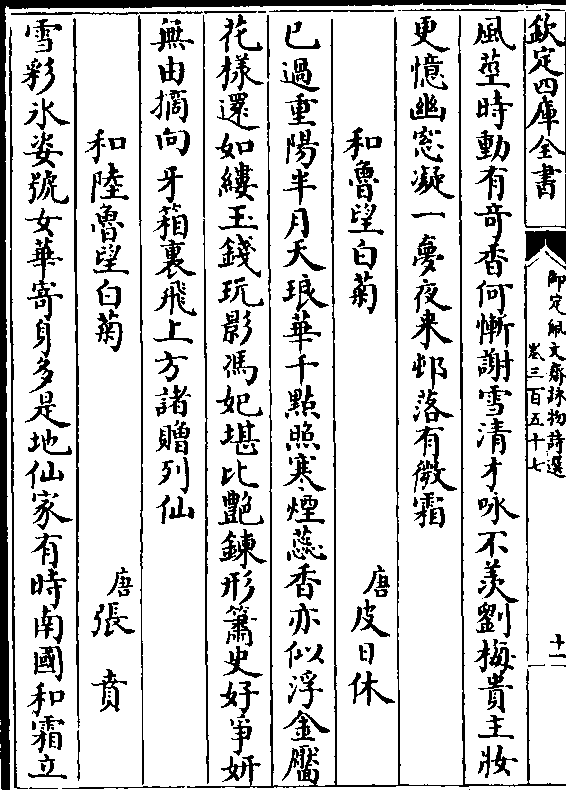 欽定四庫全書
御定佩文齋詠物詩選
卷三百五十七
十一
風莖時動有奇香何慚謝雪清才咏不羨劉梅貴主妝
更憶幽窓凝一夢夜來邨落有微霜
和魯望白菊
唐皮日休
已過重陽半月天琅華千點照寒煙蕊香亦似浮金靨
花樣還如縷玉錢玩影馮妃堪比艷鍊形簫史好爭妍
無由摘向牙箱裏飛上方諸贈列仙
和陸魯望白菊
唐張賁
雪彩氷姿號女華寄身多是地仙家有時南國和霜立